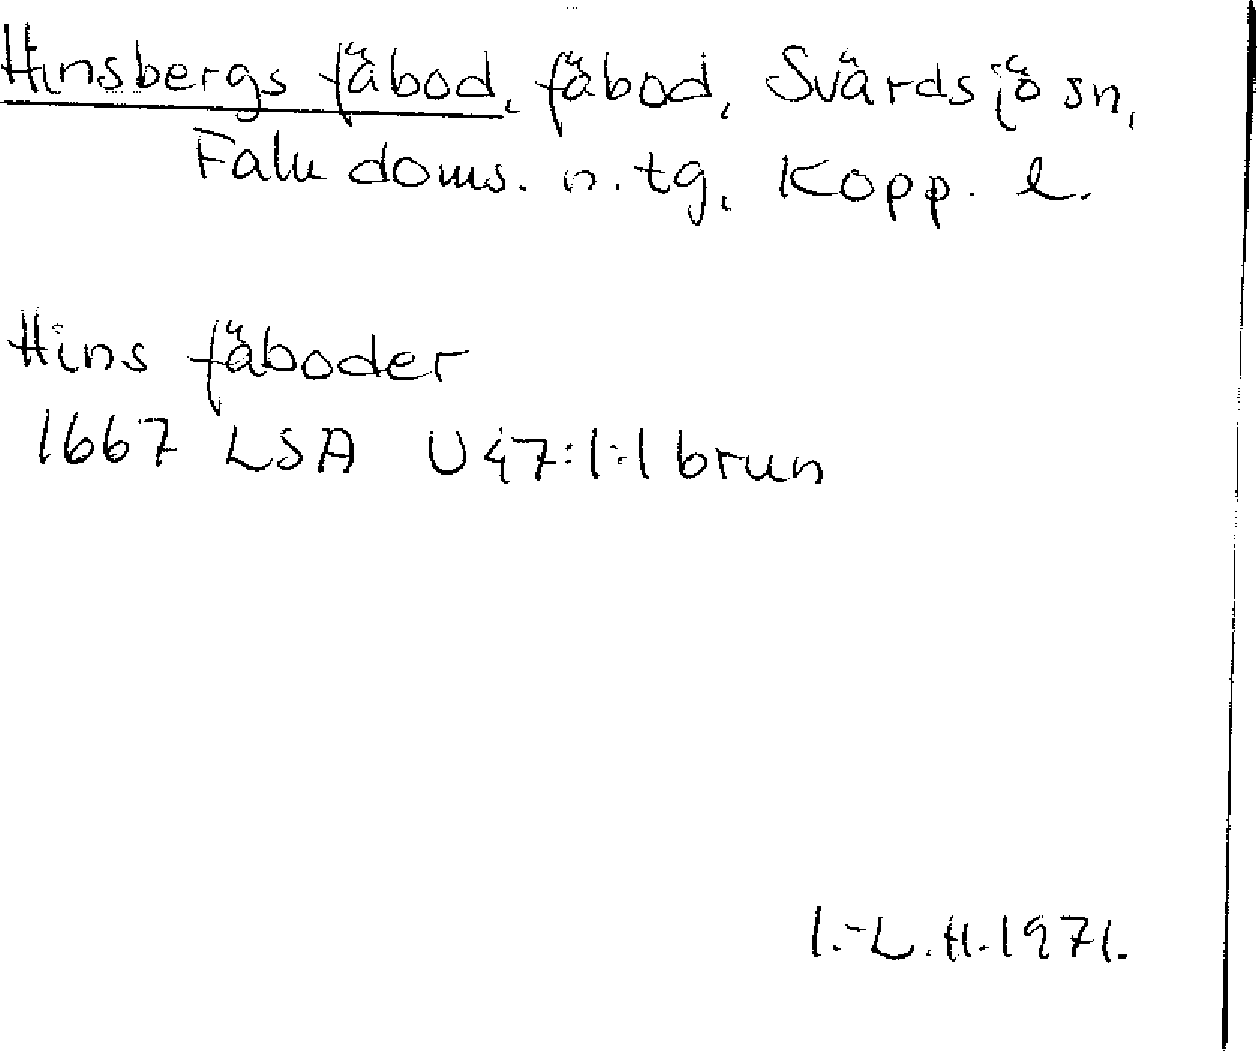 Hinsbergs fäbod, fäbod, Svärdsjö sn,
Falu doms. n. tg, Kopp. l.
Hins fäboder
1667 LSA U47:1:1 brun
I.-L.H. 1971.